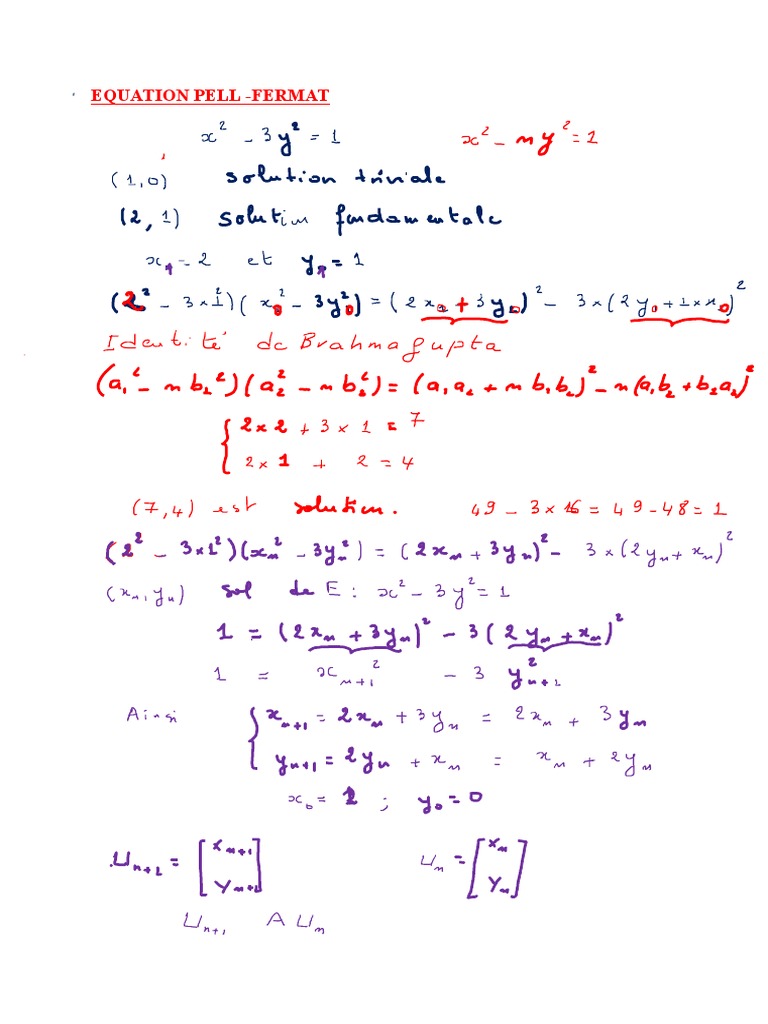 EQUATION PELL -FERMAT
x² - 3y² = 1    x² - ny² = 1
(1,0) solution triviale
(2, 1) solution fondamentale
x₁ = 2 et y₁ = 1
(2² - 3×1²)(x₀² - 3y₀²) = (2x₀ + 3y₀)² - 3×(2y₀ + 1×x₀)²
Identité de Brahmagupta
(a₁² - nb₁²)(a₂² - nb₂²) = (a₁a₂ + nb₁b₂)² - n(a₁b₂ + b₁a₂)²
{ 2×2 + 3×1 = 7
2×1 + 2 = 4
(7,4) est solution. 49 - 3×16 = 49 - 48 = 1
(2² - 3×1²)(xₙ² - 3yₙ²) = (2xₙ + 3yₙ)² - 3×(2yₙ + xₙ)²
(xₙ, yₙ) sol de E : x² - 3y² = 1
1 = (2xₙ + 3yₙ)² - 3(2yₙ + xₙ)²
1 = xₙ₊₁² - 3 yₙ₊₁²
Ainsi { xₙ₊₁ = 2xₙ + 3yₙ = 2xₙ + 3yₙ
yₙ₊₁ = 2yₙ + xₙ = xₙ + 2yₙ
x₀ = 1 ; y₀ = 0
Uₙ₊₁ = [xₙ₊₁ yₙ₊₁]    Uₙ = [xₙ yₙ]
Uₙ₊₁ A Uₙ